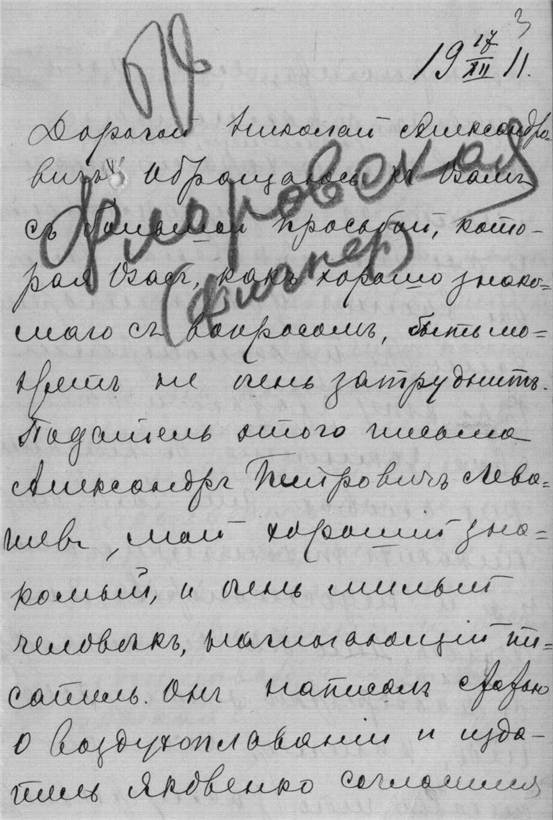 3
19 17/XII 11.
Дорогой Николай Александро-
вичъ! Обращаюсь къ Вамъ
Флоровская
съ большой просьбой, кото-
(Фигнер)
рая Васъ, какъ хорошо знако-
маго съ вопросомъ, быть мо-
жетъ не очень затруднитъ.
Податель этого письма
Александръ Петровичъ Лева-
шевъ, мой хорошій зна-
комый, и очень милый
человѣкъ, начинающій пи-
сатель. Онъ написалъ статью
о воздухоплаваніи и изда-
тель Яковенко согласился